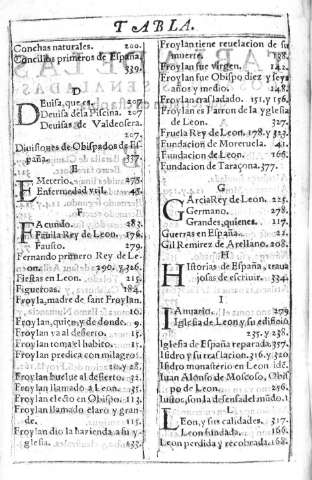 TABLA.
Conchas naturales. 200.
Concilios primeros de España.
339.
D
DEuisa, que es. 507
Deuisa dela Piscina. 207
Deuisas de Valdeosera.
207.
Diuisiones de Obispados de Es-
paña. 337.
E
EMeterio. 275.
Enfermedad vtil. 45.
F
FAcundo. 283.
Fauila Rey de Leon. 176.
Fausto. 279.
Fernando primero Rey de Le-
on. 290. y 326.
Fiestas en Leon. 215.
Figueroas. 184.
Froyla, madre de sant Froylan.
10.
Froylan, quien, y de donde. 9.
Froylan va al desierto. 15.
Froylan toma el habito. 15.
Froylan predica con milagros.
20. y 28.
Froylan buelue al desierto. 32.
Froylan llamado a Leon. 35.
Froylan electo en Obispo. 113.
Froylan llamado claro y gran-
de. 115.
Froylan dio la hazienda a su y-
glesia. 133.
Froylan tiene reuelacion de su
muerte. 138.
Froylan fue virgen. 142.
Froylan fue Obispo diez y seys
años y medio. 148.
Froylan trasladado. 151. y 156.
Froylan es Patron de la yglesia
de Leon. 327.
Fruela Rey de Leon. 178. y 323.
Fundacion de Moreruela. 41.
Fundacion de Leon. 166.
Fundacion de Taraçona. 377.
G
GArcia Rey de Leon. 225.
Germano. 278.
Grandes, quienes. 117.
Guerras en España. 21.
Gil Remirez de Arellano. 208.
H
HIstorias de España, traua
josas de escriuir. 334.
I
IAnuario. 279
Iglesia de Leon y su edificio.
235. y 238.
Iglesia de España reparada. 357.
Isidro y su traslacion. 316. y 320
Isidro monasterio en Leon idẽ.
Iuan Alonso de Moscoso, Obis
po de Leon. 256.
Iustos, son la defensa del mũdo. 1.
L
LEon, y sus calidades. 317.
Leon fundada. 166.
Leon perdida y recobrada. 168.